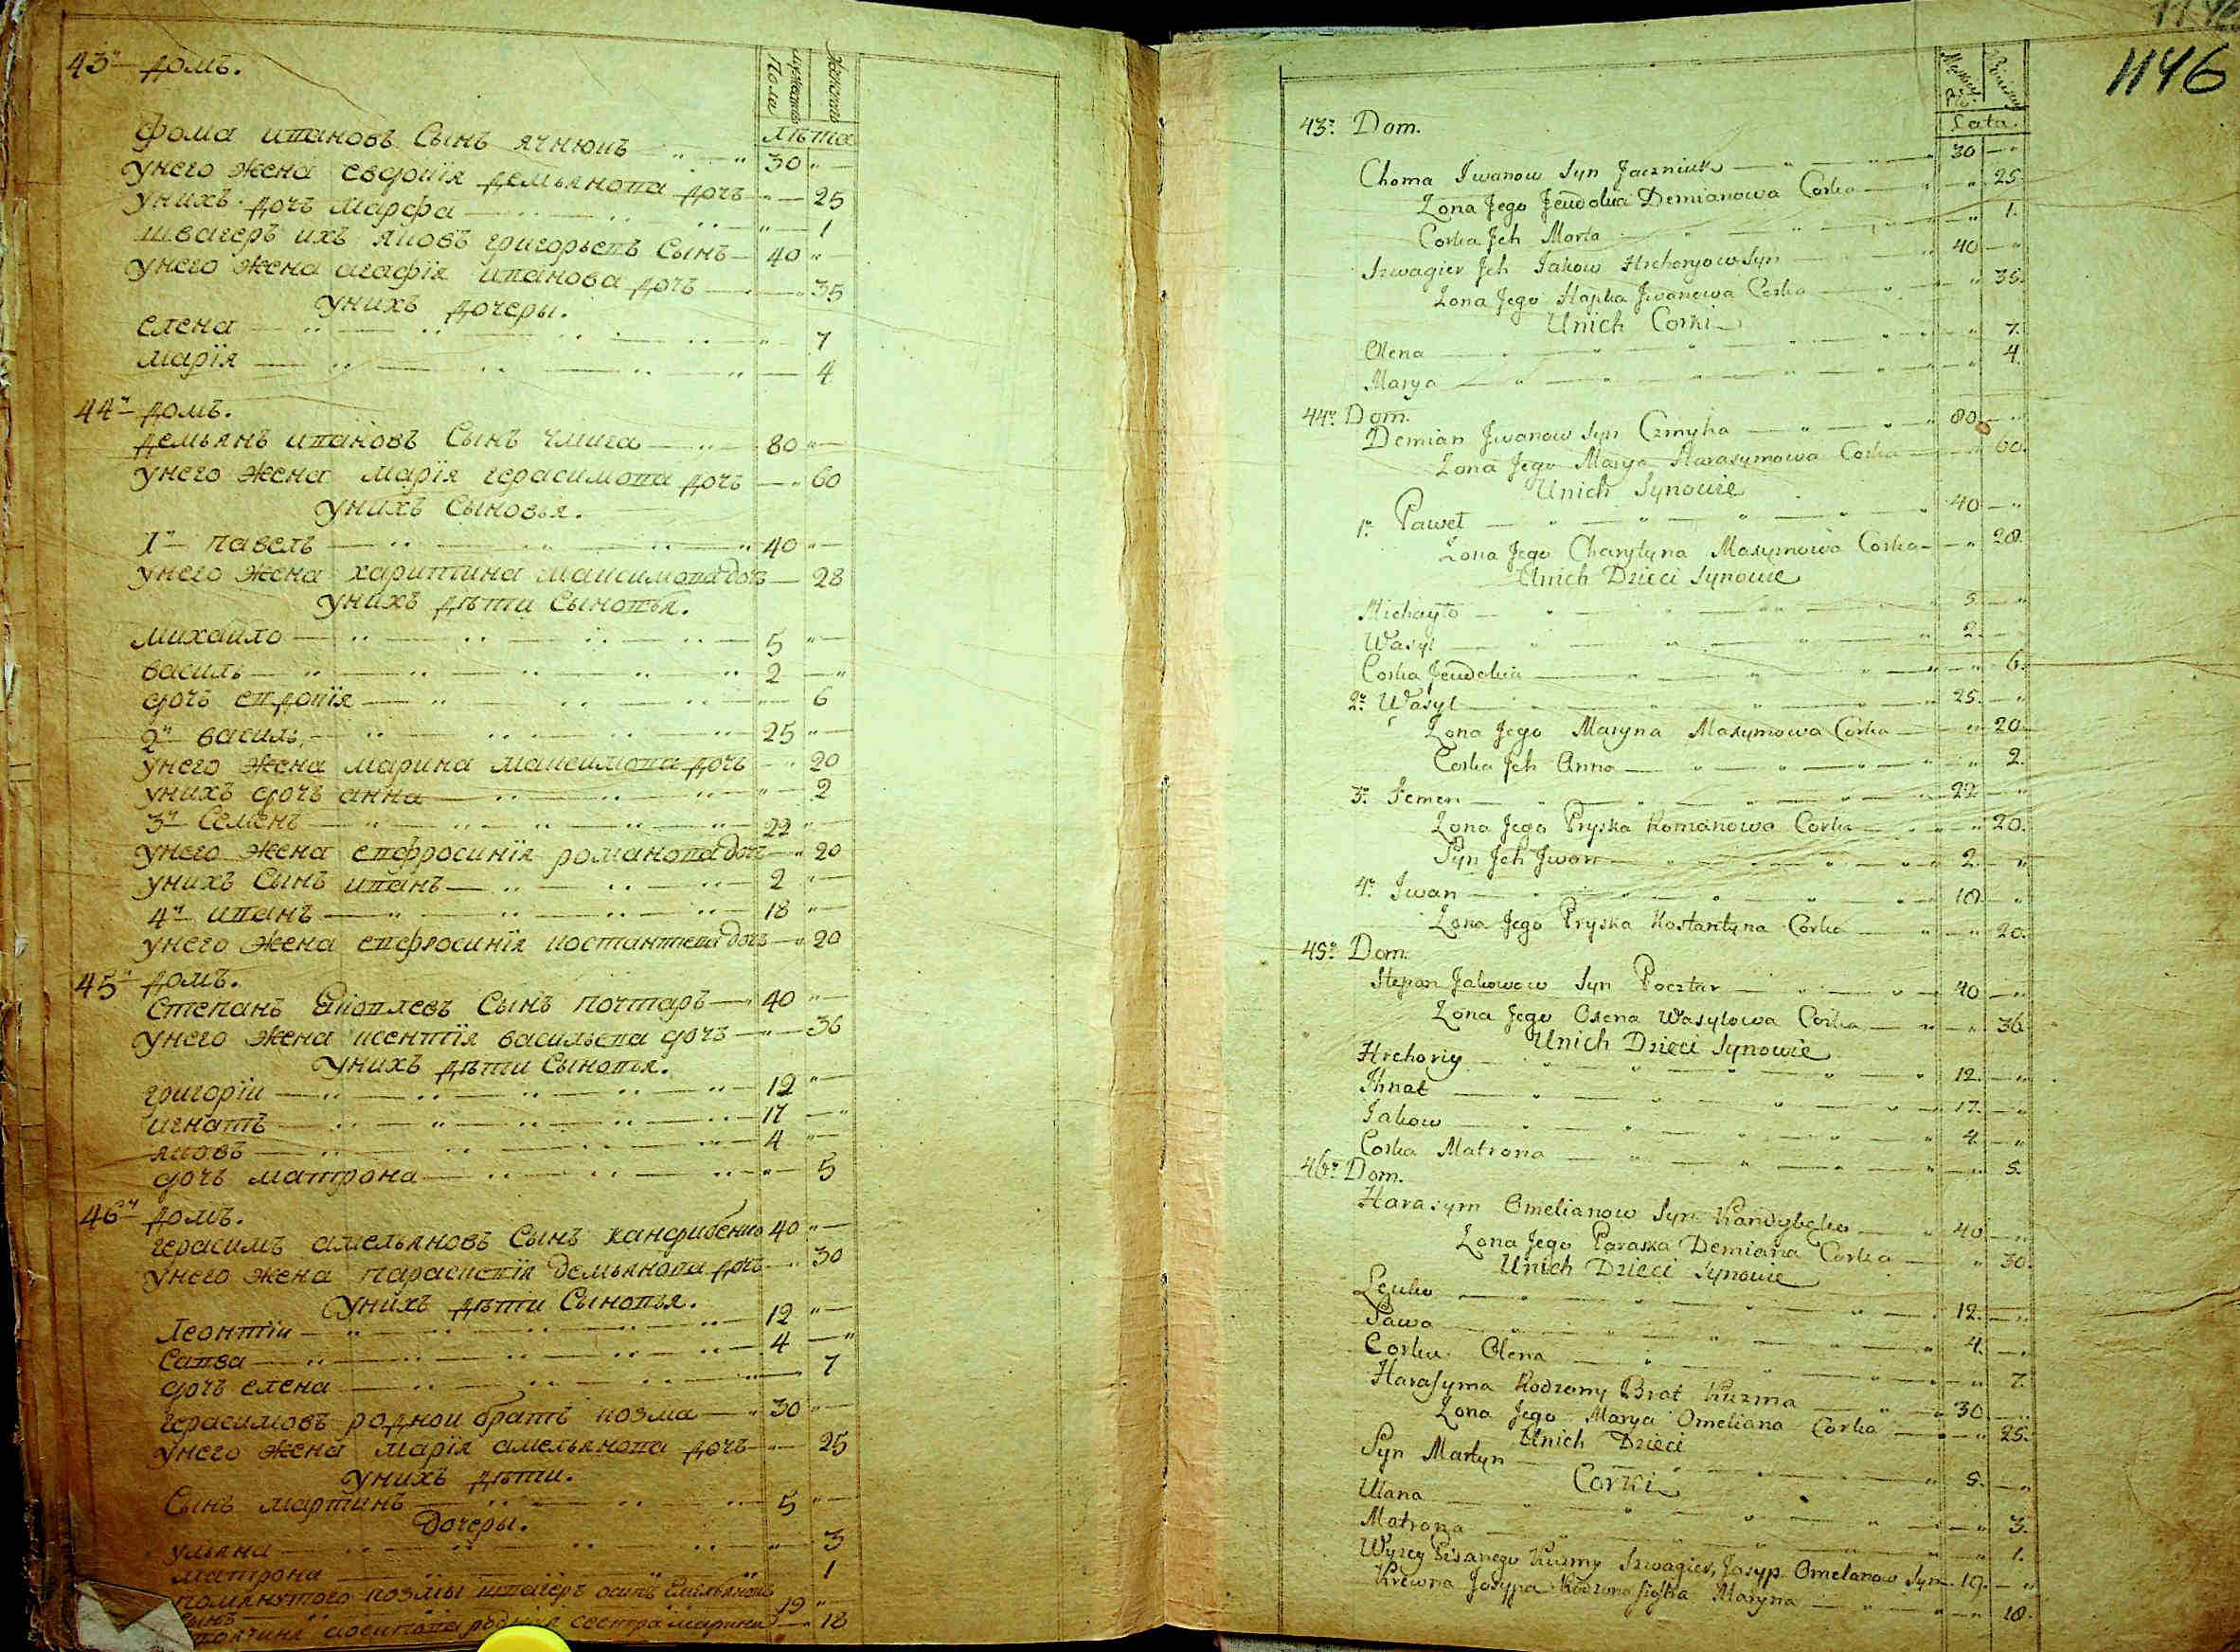 43й домъ.
Пола
мужеска
женска
лѣта
фома ивановъ Сынъ ячнюкъ 30
унего жена евдокія демьянова дочъ 25
унихъ дочъ марфа 1
швагеръ ихъ яковъ григорьевъ Сынъ 40
унего жена агафія иванова дочъ 35
унихъ дочеры.
елена 7
марія 4
44й домъ.
демьянъ ивановъ Сынъ чмига 80
унего жена марія герасимова дочъ 60
унихъ Сыновья.
1й павелъ 40
унего жена харитина максимова дочъ 28
унихъ дѣти Сыновья.
михаило 5
василь 2
дочъ евдокія 6
2й василь 25
унего жена марина максимова дочъ 20
унихъ дочъ анна 2
3й Семенъ 22
унего жена евфросинія романова дочъ 20
унихъ Сынъ иванъ 2
4й иванъ 18
унего жена евфросинія костантева дочъ 20
45й домъ.
Степанъ Яковлевъ Сынъ почтаръ 40
унего жена ксентія васильева дочъ 36
унихъ дѣти Сыновья.
григоріи 12
игнатъ 17
яковъ 4
дочъ матрона 5
46й домъ.
герасимъ амельяновъ Сынъ кандибенко 40
унего жена параскевія демьянова дочъ 30
унихъ дѣти Сыновья.
Леонтіи 12
Савва 4
дочъ елена 7
герасимовъ роднои братъ козма 30
унего жена марія амельянова дочъ 25
унихъ дѣти.
Сынъ мартинъ 5
дочеры.
ульяна 3
матрона 1
помянутого козмы швагеръ осипъ Емельяновъ
Сынъ 19
осипова родная сестра марина 18
1146
Lata.
43o Dom.
Choma Iwanow Syn Jaczniuk 30
Zona Jego Jewdokia Demianowa Corka 25
Corka Jch Marta 1.
Szwagier Jch Jakow Hrehoryow Syn 40
Zona Jego Hapka Jwanowa Corka 35.
Unich Corki
Olena 7.
Marya 4.
44o Dom.
Demian Jwanow Syn Czmyha 80
Zona Jego Marya Harasymowa Corka 60.
Unich Synowie
1o Paweł 40
Zona Jego Charytyna Maxymowa Corka 28.
Unich Dzieci Synowie
Michayło 5.
Wasyl 2.
Corka Jewdokia 6.
2o Wasyl 25.
Zona Jego Maryna Maxymowa Corka 20
Corka Jch Anna 2.
3o Semen 22
Zona Jego Pryska Romanowa Corka 20.
Syn Jch Jwan 2.
4o Jwan 18.
Zona Jego Pryska Kostantyna Corka 20.
45o Dom.
Stepan Jakowow Syn Pocztar 40
Zona Jego Oxena Wasylowa Corka 36
Unich Dzieci Synowie
Hrehoriy 12.
Jhnat 17.
Jakow 4.
Corka Matrona 5.
46o Dom.
Harasym Omelianow Syn Kandybeko 40
Zona Jego Paraska Demiana Corka 30.
Unich Dzieci Synowie
Lewko 12.
Sawa 4.
Corka Olena 7.
Harasyma Rodzony Brat Kuzma 30
Zona Jego Marya Omeliana Corka 25.
Unich Dzieci
Syn Martyn 5.
Corki
Ulana 3.
Matrona 1.
Wyzey Pisanego Kuzmy Szwagier, Josyp Omelanow Syn 19.
Krewna Josypa Rodzona Siostra Maryna 18.